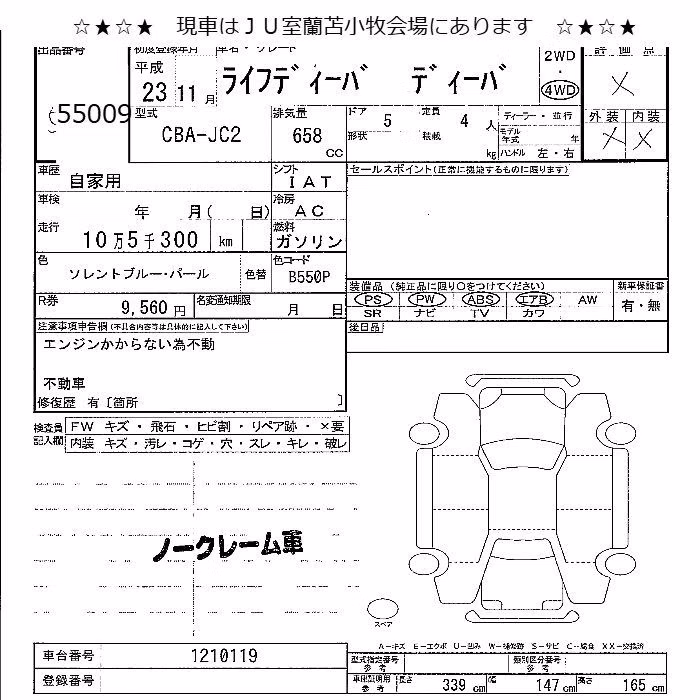 ☆★☆★　現車はＪＵ室蘭苫小牧会場にあります　☆★☆★
出品番号 初度登録年月 車名・グレード 評価点
55009
平成
23 11 月
ライフディーバ ディーバ
2WD
・
4WD
×
型式
CBA-JC2
排気量
658
CC
ドア 5 定員 4 人
形状 積載 kg
ディーラー・並行
モデル年式 年
ハンドル 左・右
外装 内装
× ×
車歴 自家用
シフト IAT
セールスポイント(正常に機能するものに限ります)
車検 年 月( 日)
冷房 AC
走行 10万5千300 km
燃料 ガソリン
色 ソレントブルー・パール 色替
色コード B550P
装備品 (純正品に限り○をつけてください) 新車保証書
PS PW ABS エアB AW 有・無
SR ナビ TV カワ
R券 9,560 円 名変通知期限 月 日
後日品
注意事項申告欄(不具合内容等は具体的に記入して下さい)
エンジンかからない為不動
不動車
修復歴 有〔箇所 〕
検査員記入欄
FW キズ・飛石・ヒビ割・リペア跡・×要
内装 キズ・汚レ・コゲ・穴・スレ・キレ・破レ
ノークレーム車
スペア
A－キズ E－エクボ U－凹み W－補修跡 S－サビ C－腐食 XX－交換済
車台番号 1210119
型式指定番号 参考 類別区分番号 参考
登録番号
車庫証明用 参考 長さ 339 cm 幅 147 cm 高さ 165 cm